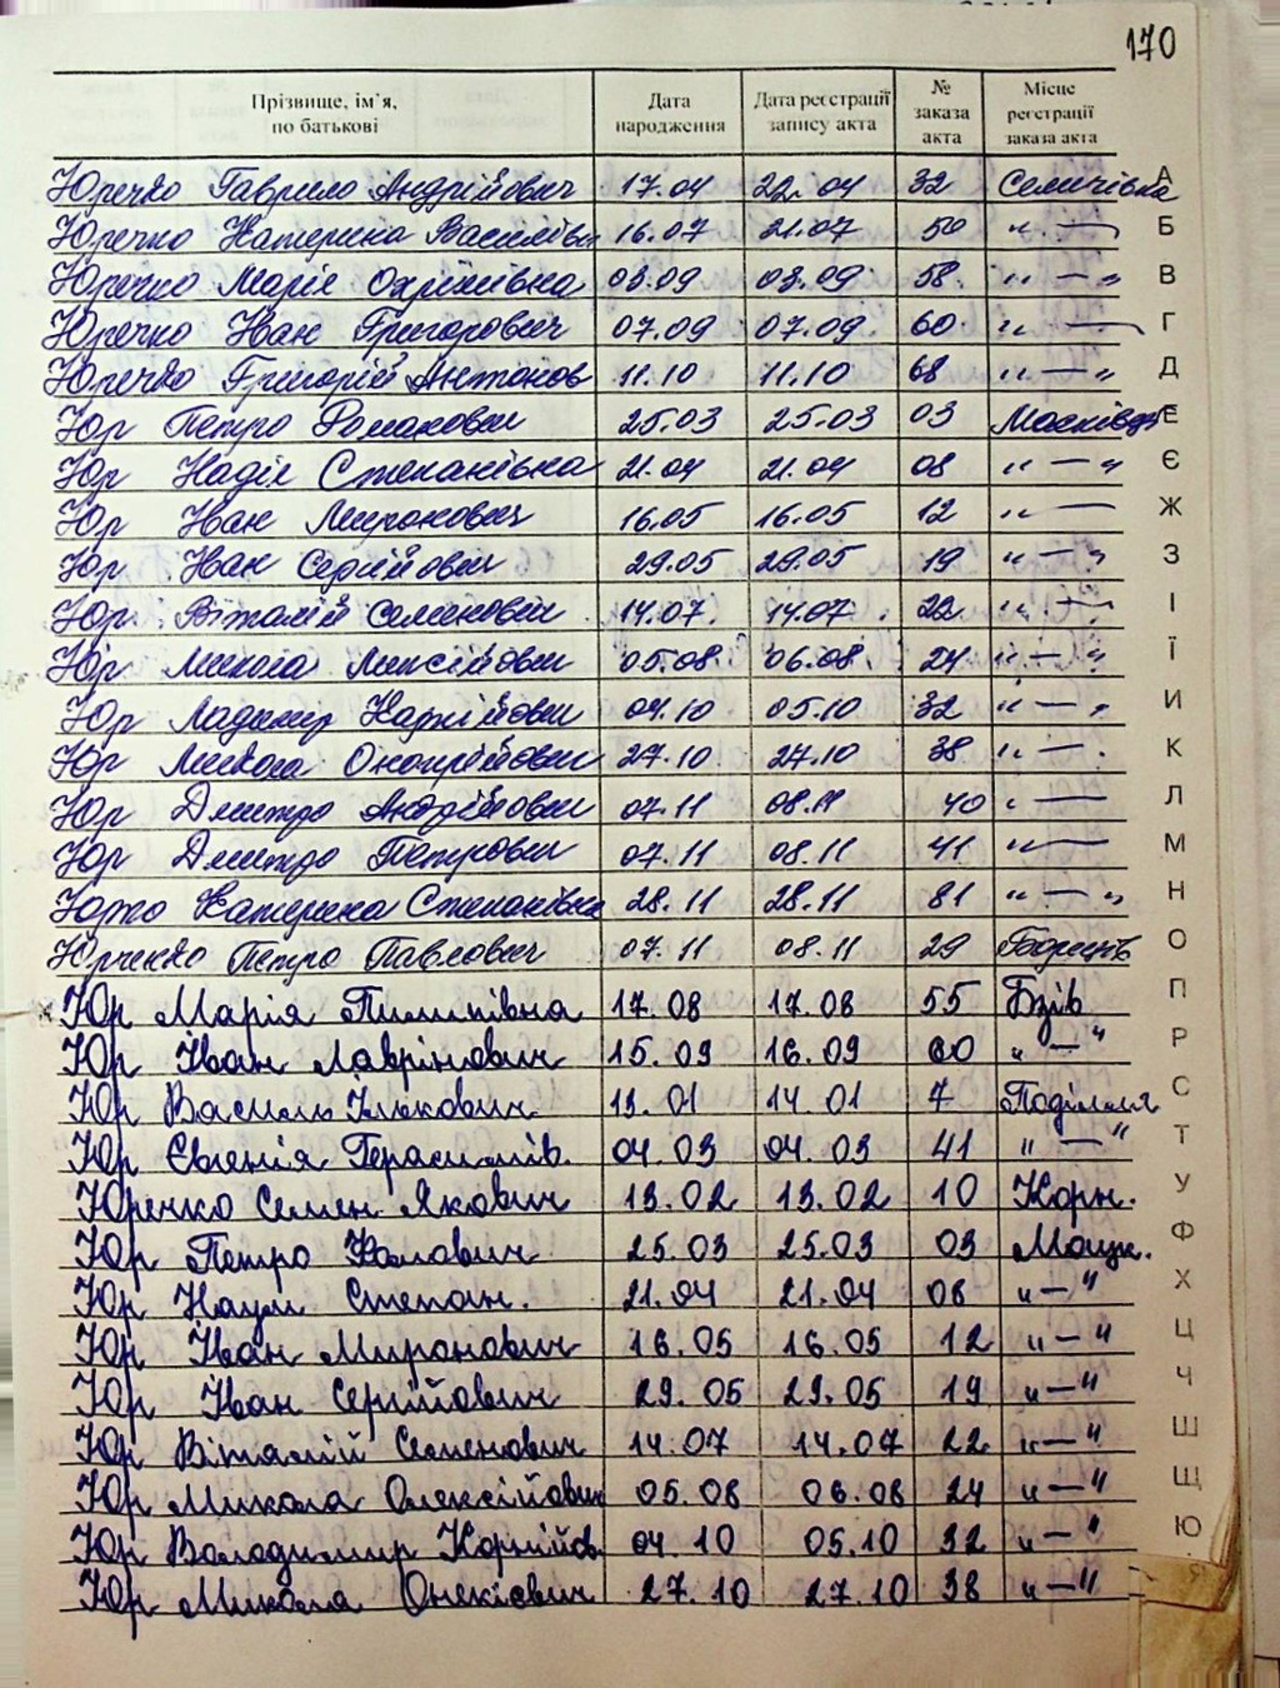 170
Прізвище, ім'я, по батькові Дата народження Дата реєстрації запису акта № заказа акта Місце реєстрації заказа акта
Юречко Гаврило Андрійович 17.04 22.04 32 Семичівка А
Юречко Катерина Василівн 16.07 21.07 50 " — Б
Юречко Марія Охрімівна 03.09 03.09 58. " — " В
Юречко Іван Григорович 07.09 07.09. 60. " — Г
Юречко Григорій Антонов 11.10 11.10 68 " — " Д
Юр Петро Романович 25.03 25.03 03 Е
Юр Надія Степанівна 21.04 21.04 08 " — " Є
Юр Іван Миронович 16.05 16.05 12 " — Ж
Юр Іван Сергійович 29.05 29.05 19 " — " З
Юр Віталій Семенович 14.07. 14.07. 22 " — І
Юр Микола 05.08. 06.08. 24 " — " Ї
Юр 04.10 05.10 32 " — " И
Юр Микола 27.10. 27.10 38 " — К
Юр Дмитро Андрійович 07.11 08.11 40 " — Л
Юр Дмитро Петрович 07.11 08.11 41 " — М
Катерина Степанівна 28.11 28.11 81 " — " Н
Юрченко Петро Павлович 07.11 08.11 29 О
Юр Марія Пилипівна 17.08 17.08 55 Бзів П
Юр Іван Лаврінович 15.09 16.09 60 " — " Р
Юр Василь Ількович 13.01 14.01 7 Поділля С
Юр Євгенія Герасимів. 04.03 04.03 41 " — " Т
Юречко Семен Якович 13.02 13.02 10 Корн. У
Юр Петро 25.03 25.03 03 Ф
Юр Наум Степан. 21.04 21.04 08 " — " Х
Юр Іван Миронович 16.05 16.05 12 " — " Ц
Юр Іван Сергійович 29.05 29.05 19 " — " Ч
Юр Віталій Семенович 14.07 14.07 22 " — " Ш
Юр Микола Олексійович 05.08 06.08 24 " — " Щ
Юр Володимир Корнійов. 04.10 05.10 32 " — " Ю
Юр Микола 27.10 27.10 38 " — " Я